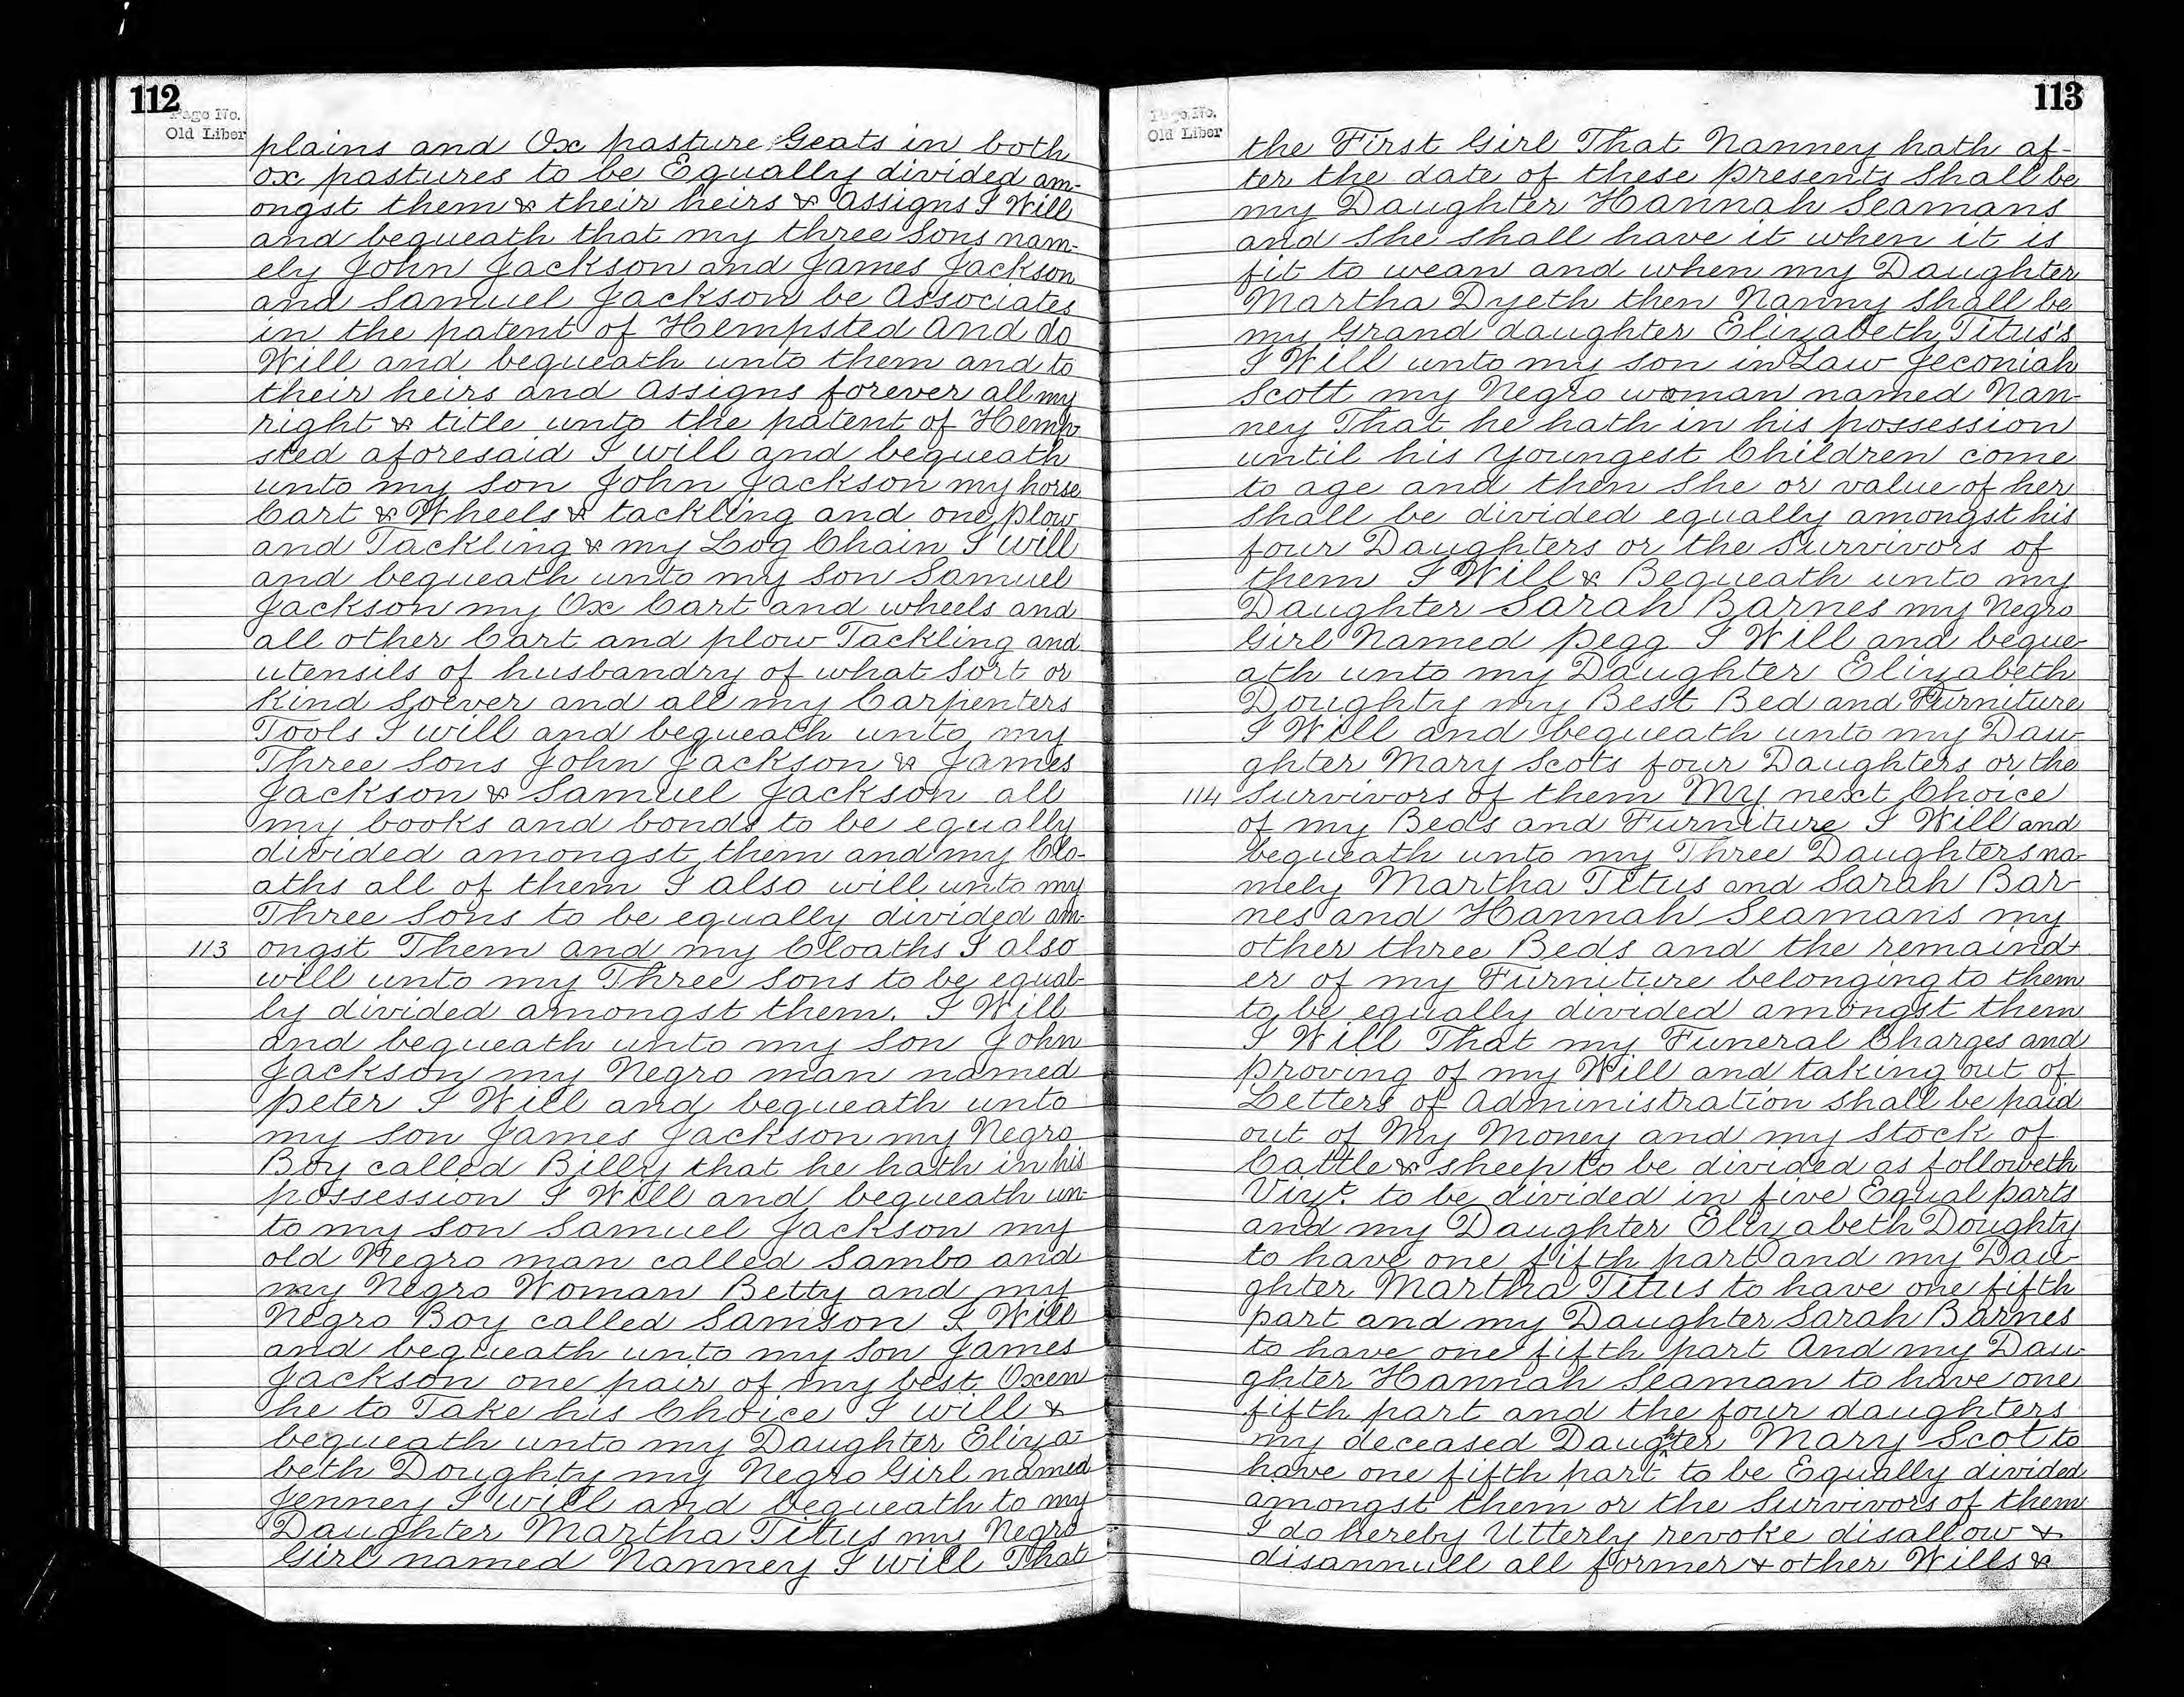 112
Page No.
Old Liber
plains and Ox pasture Geats in both
ox pastures to be Equally divided am-
ongst them & their heirs & Assigns I Will
and bequeath that my three Sons nam-
ely John Jackson and James Jackson
and Samuel Jackson be Associates
in the patent of Hempsted And do
Will and bequeath unto them and to
their heirs and Assigns forever all my
right & title unto the patent of Hemp
sted aforesaid I will and bequeath
unto my Son John Jackson my horse
Cart & Wheels & tackling and one plow
and Tackling & my Log Chain I will
and bequeath unto my Son Samuel
Jackson my Ox Cart and wheels and
all other Cart and plow Tackling and
utensils of husbandry of what Sort or
Kind Soever and all my Carpenters
Tools I will and bequeath unto my
Three Sons John Jackson & James
Jackson & Samuel Jackson all
my books and bonds to be equally
divided amongst them and my Clo-
aths all of them I also will unto my
Three Sons to be equally divided am-
113 ongst Them and my Cloaths I also
will unto my Three Sons to be equal-
ly divided amongst them. I Will
and bequeath unto my Son John
Jackson my Negro man named
peter I Will and bequeath unto
my Son James Jackson my Negro
Boy called Billy that he hath in his
possession I Will and bequeath un-
to my Son Samuel Jackson my
old Negro man called Sambo and
my Negro Woman Betty and my
Negro Boy called Samson I Will
and bequeath unto my Son James
Jackson one pair of my best Oxen
he to Take his Choice I will &
bequeath unto my Daughter Eliza-
beth Doughty my Negro Girl named
Jenney I will and bequeath to my
Daughter Martha Titus my Negro
Girl named Nanney I will That
113
Page No.
Old Liber
the First Girl That Nanney hath af-
ter the date of these presents Shall be
my Daughter Hannah Seamans
and She Shall have it when it is
fit to wean and when my Daughter
Martha Dyeth then Nanny Shall be
my Grand daughter Elizabeth Titus's
I Will unto my Son in Law Jeconiah
Scott my Negro woman named Nan-
ney That he hath in his possession
until his Youngest Children come
to age and then She or value of her
Shall be divided equally amongst his
four Daughters or the Survivors of
them I Will & Bequeath unto my
Daughter Sarah Barnes my Negro
Girl Named Pegg I Will and beque-
ath unto my Daughter Elizabeth
Doughty my Best Bed and Furniture
I Will and bequeath unto my Dau-
ghter Mary Scots four Daughters or the
114 Survivors of them My next Choice
of my Beds and Furniture I Will and
bequeath unto my Three Daughters na-
mely Martha Titus and Sarah Bar-
nes and Hannah Seamans my
other three Beds and the remaind-
er of my Furniture belonging to them
to be equally divided amongst them
I Will That my Funeral Charges and
proving of my Will and taking out of
Letters of Administration Shall be paid
out of My Money and my Stock of
Cattle & sheep to be divided as followeth
Vizt. to be divided in five Equal parts
and my Daughter Elizabeth Doughty
to have one fifth part and my Dau-
ghter Martha Titus to have one fifth
part and my Daughter Sarah Barnes
to have one fifth part And my Dau-
ghter Hannah Seaman to have one
fifth part and the four daughters
my deceased Daughter Mary Scot to
have one fifth part to be Equally divided
amongst them or the Survivors of them
I do hereby Utterly revoke disallow &
disannull all former & other Wills &